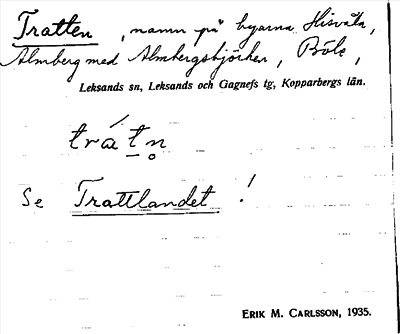 Tratten, namn på byarna Hisvåla,
Almberg med Almbergsbjörken, Böle,
Leksands sn, Leksands och Gagnefs tg, Kopparbergs län.
trátn̥
Se Trattlandet!
ERIK M. CARLSSON, 1935.